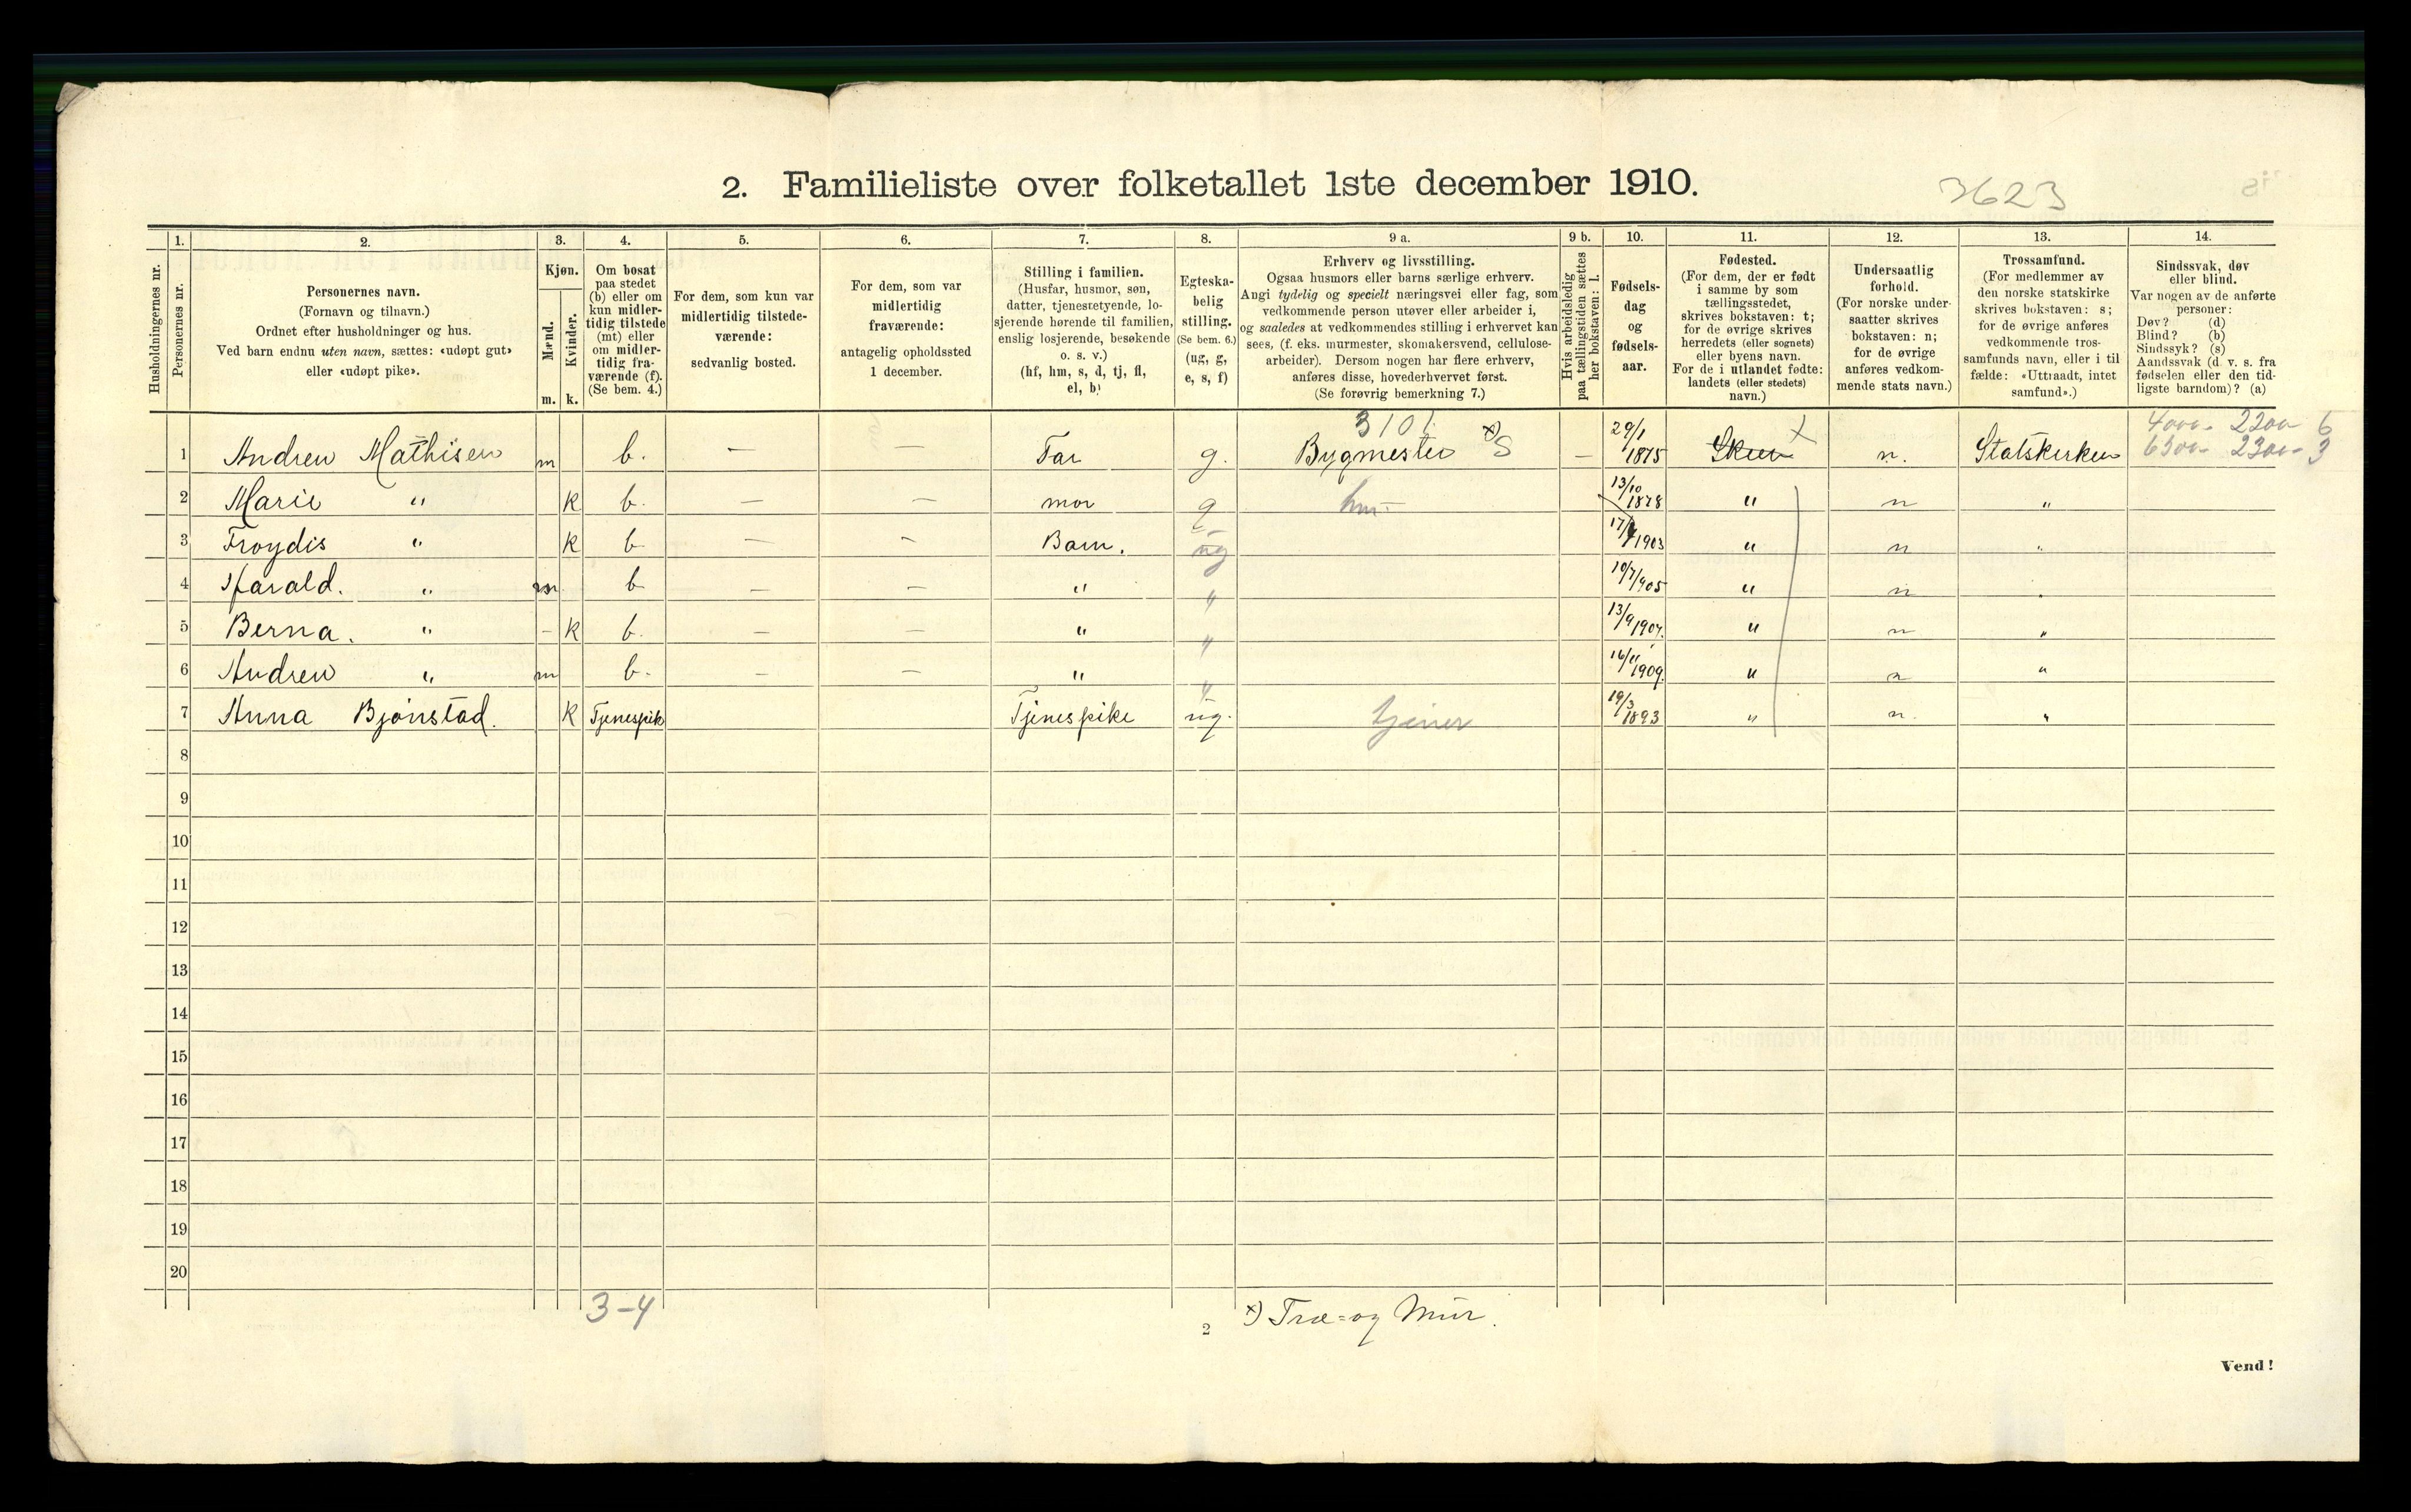 2. Familieliste over folketallet 1ste december 1910.
3623
Husholdningernes nr.
1. Personernes nr.
2. Personernes navn.
(Fornavn og tilnavn.)
Ordnet efter husholdninger og hus.
Ved barn endnu uten navn, sættes: «udøpt gut»
eller «udøpt pike».
3. Kjøn.
Mænd. m.
Kvinder. k.
4. Om bosat
paa stedet
(b) eller om
kun midler-
tidig tilstede
(mt) eller
om midler-
tidig fra-
værende (f).
(Se bem. 4.)
5. For dem, som kun var
midlertidig tilstede-
værende:
sedvanlig bosted.
6. For dem, som var
midlertidig
fraværende:
antagelig opholdssted
1 december.
7. Stilling i familien.
(Husfar, husmor, søn,
datter, tjenestetyende, lo-
sjerende hørende til familien,
enslig losjerende, besøkende
o. s. v.)
(hf, hm, s, d, tj, fl,
el, b)
8. Egteska-
belig
stilling.
(Se bem. 6.)
(ug, g,
e, s, f)
9 a. Erhverv og livsstilling.
Ogsaa husmors eller barns særlige erhverv.
Angi tydelig og specielt næringsvei eller fag, som
vedkommende person utøver eller arbeider i,
og saaledes at vedkommendes stilling i erhvervet kan
sees, (f. eks. murmester, skomakersvend, cellulose-
arbeider). Dersom nogen har flere erhverv,
anføres disse, hovederhvervet først.
(Se forøvrig bemerkning 7.)
9 b. Hvis arbeidsledig
paa tællingstiden sættes
her bokstaven: l.
10. Fødsels-
dag
og
fødsels-
aar.
11. Fødested.
(For dem, der er født
i samme by som
tællingsstedet,
skrives bokstaven: t;
for de øvrige skrives
herredets (eller sognets)
eller byens navn.
For de i utlandet fødte:
landets (eller stedets)
navn.)
12. Undersaatlig
forhold.
(For norske under-
saatter skrives
bokstaven: n;
for de øvrige
anføres vedkom-
mende stats navn.)
13. Trossamfund.
(For medlemmer av
den norske statskirke
skrives bokstaven: s;
for de øvrige anføres
vedkommende tros-
samfunds navn, eller i til
fælde: «Uttraadt, intet
samfund».)
14. Sindssvak, døv
eller blind.
Var nogen av de anførte
personer:
Døv? (d)
Blind? (b)
Sindssyk? (s)
Aandssvak (d. v. s. fra
fødselen eller den tid-
ligste barndom)? (a)
3101 4000- 2200- 6
1 Andrew Mathisen m b. — — Far g. Bygmester x) S — 29/1 1875 Skien n. Statskirken 6300- 2300- 3
2 Marie " k b. — — mor g hm- 13/10 1878 " n "
3 Froydis " k b — - Barn. ug 1903 " n "
4 Harald. " m b — — " " 10/7 1905 " n "
5 Berna. " - k b. — — " " 13/9 1907. " n "
6 Andrew " m b. — — " " 16/11 1909. " n "
7 Anna Bjønstad. k Tjenespik Tjenespike ug. tjener 19/3 1893 " n. "
8
9
10
11
12
13
14
15
16
17
18
19
20
3-4
x) Træ= og Mur.
2
Vend!